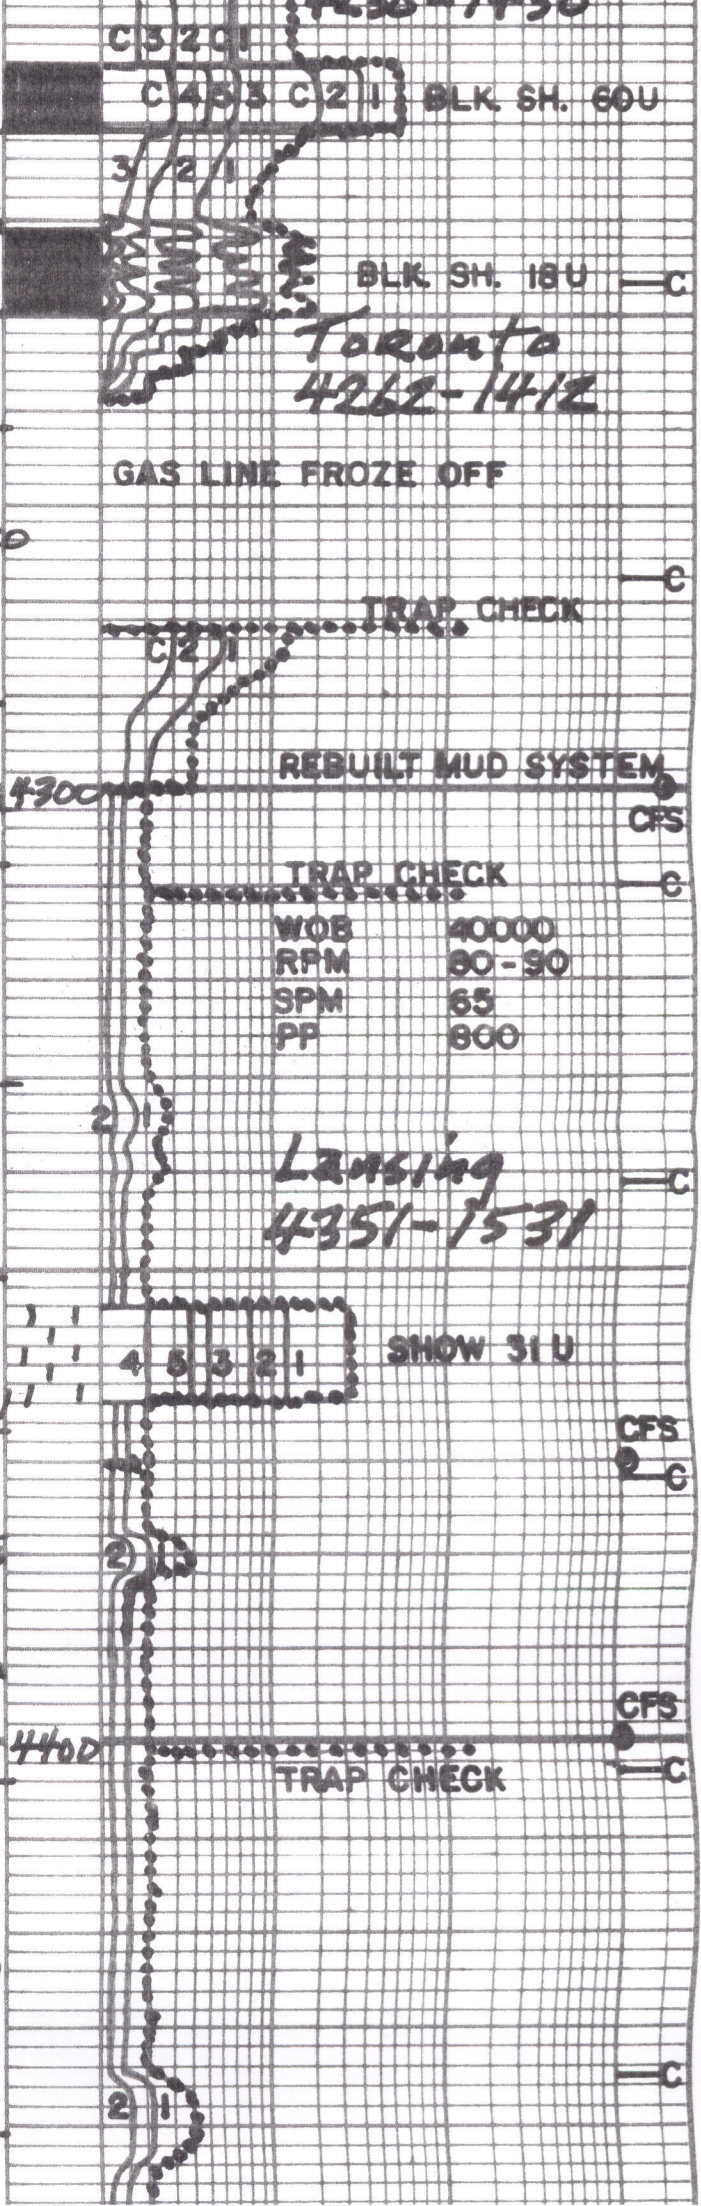 C 3 2 C 1
C 4 5 3 C 2 1 BLK. SH. 60U
3 2 1
BLK. SH. 18U C
Toronto
4262-1412
GAS LINE FROZE OFF
0
C
TRAP CHECK
C 2 1
REBUILT MUD SYSTEM
4300
CFS
TRAP CHECK C
WOB 40000
RPM 80-90
SPM 65
PP 800
2 1
Lansing
C
4351-1531
4 5 3 2 1 SHOW 31U
CFS
C
2 1
CFS
4400
TRAP CHECK C
C
2 1